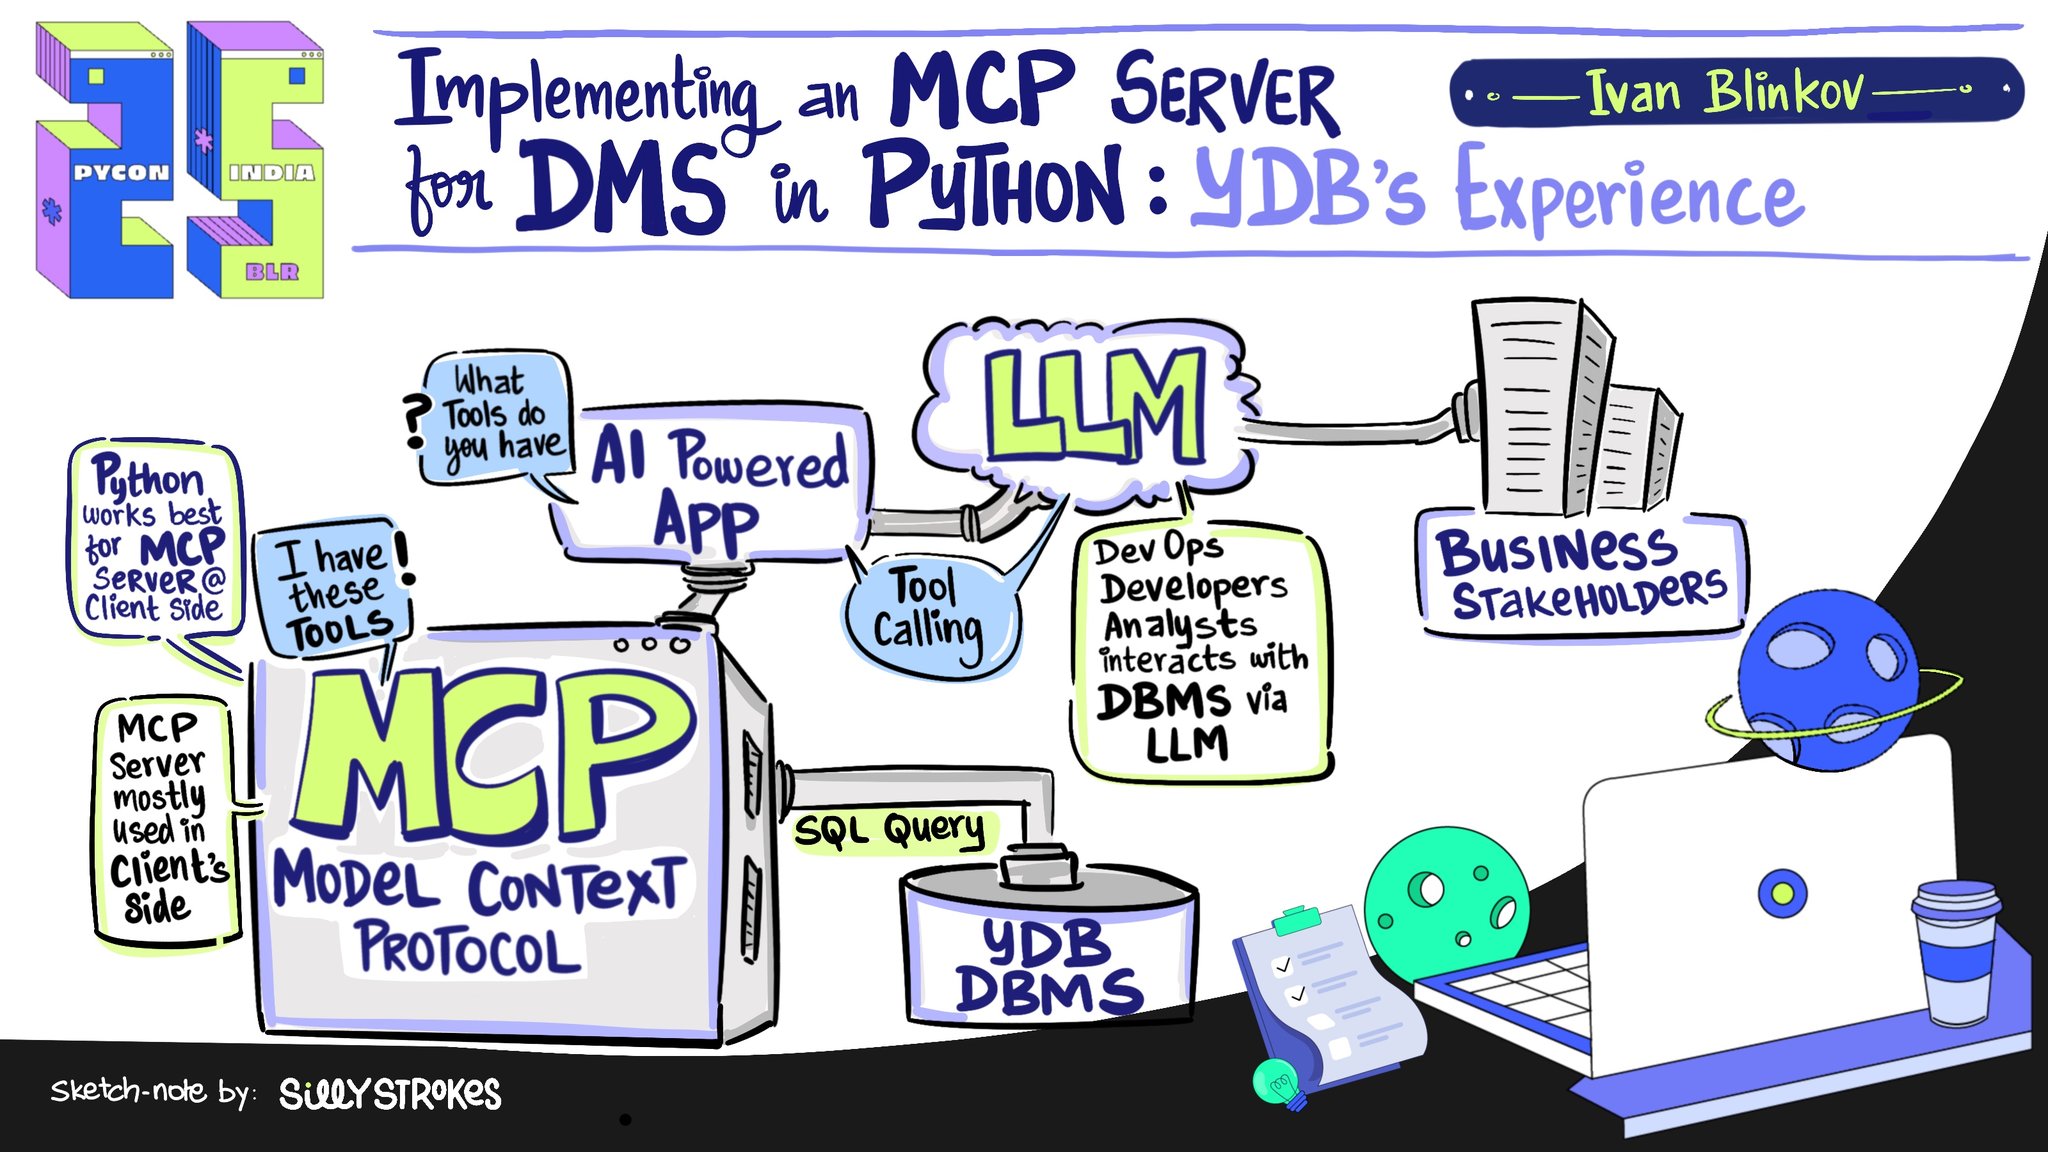 PYCON INDIA
BLR
Implementing an MCP SERVER
for DMS in PYTHON: YDB's Experience
Ivan Blinkov
What
Tools do
you have
?
AI Powered
APP
LLM
Python
works best
for MCP
SERVER@
Client Side
I have
these
TOOLS
!
Tool
Calling
DevOps
Developers
Analysts
interacts with
DBMS via
LLM
BUSINESS
STAKEHOLDERS
MCP
Server
mostly
used in
Client's
Side
MCP
MODEL CONTEXT
PROTOCOL
SQL Query
YDB
DBMS
Sketch-note by: SillYSTROKES